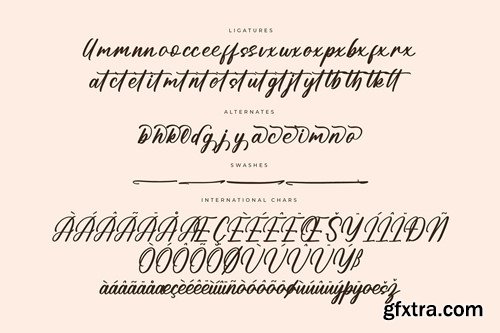 LIGATURES
Ummnnaocceeffssvxwxoxpxbxfxrx
atctetitmtntetstutgtjtyltbthtktt
ALTERNATES
bhkldgjyaceimno
SWASHES
INTERNATIONAL CHARS
ÀÁÂÃÄÅÆÇÈÉÊËŒŠÝÌÍÎÐÑ
ÒÓÔÕÖØÙÚÛÜÝß
àáâãäåæçèéêëìíîïñòóôõöøùúûüýþÿœšž
gfxtra.com